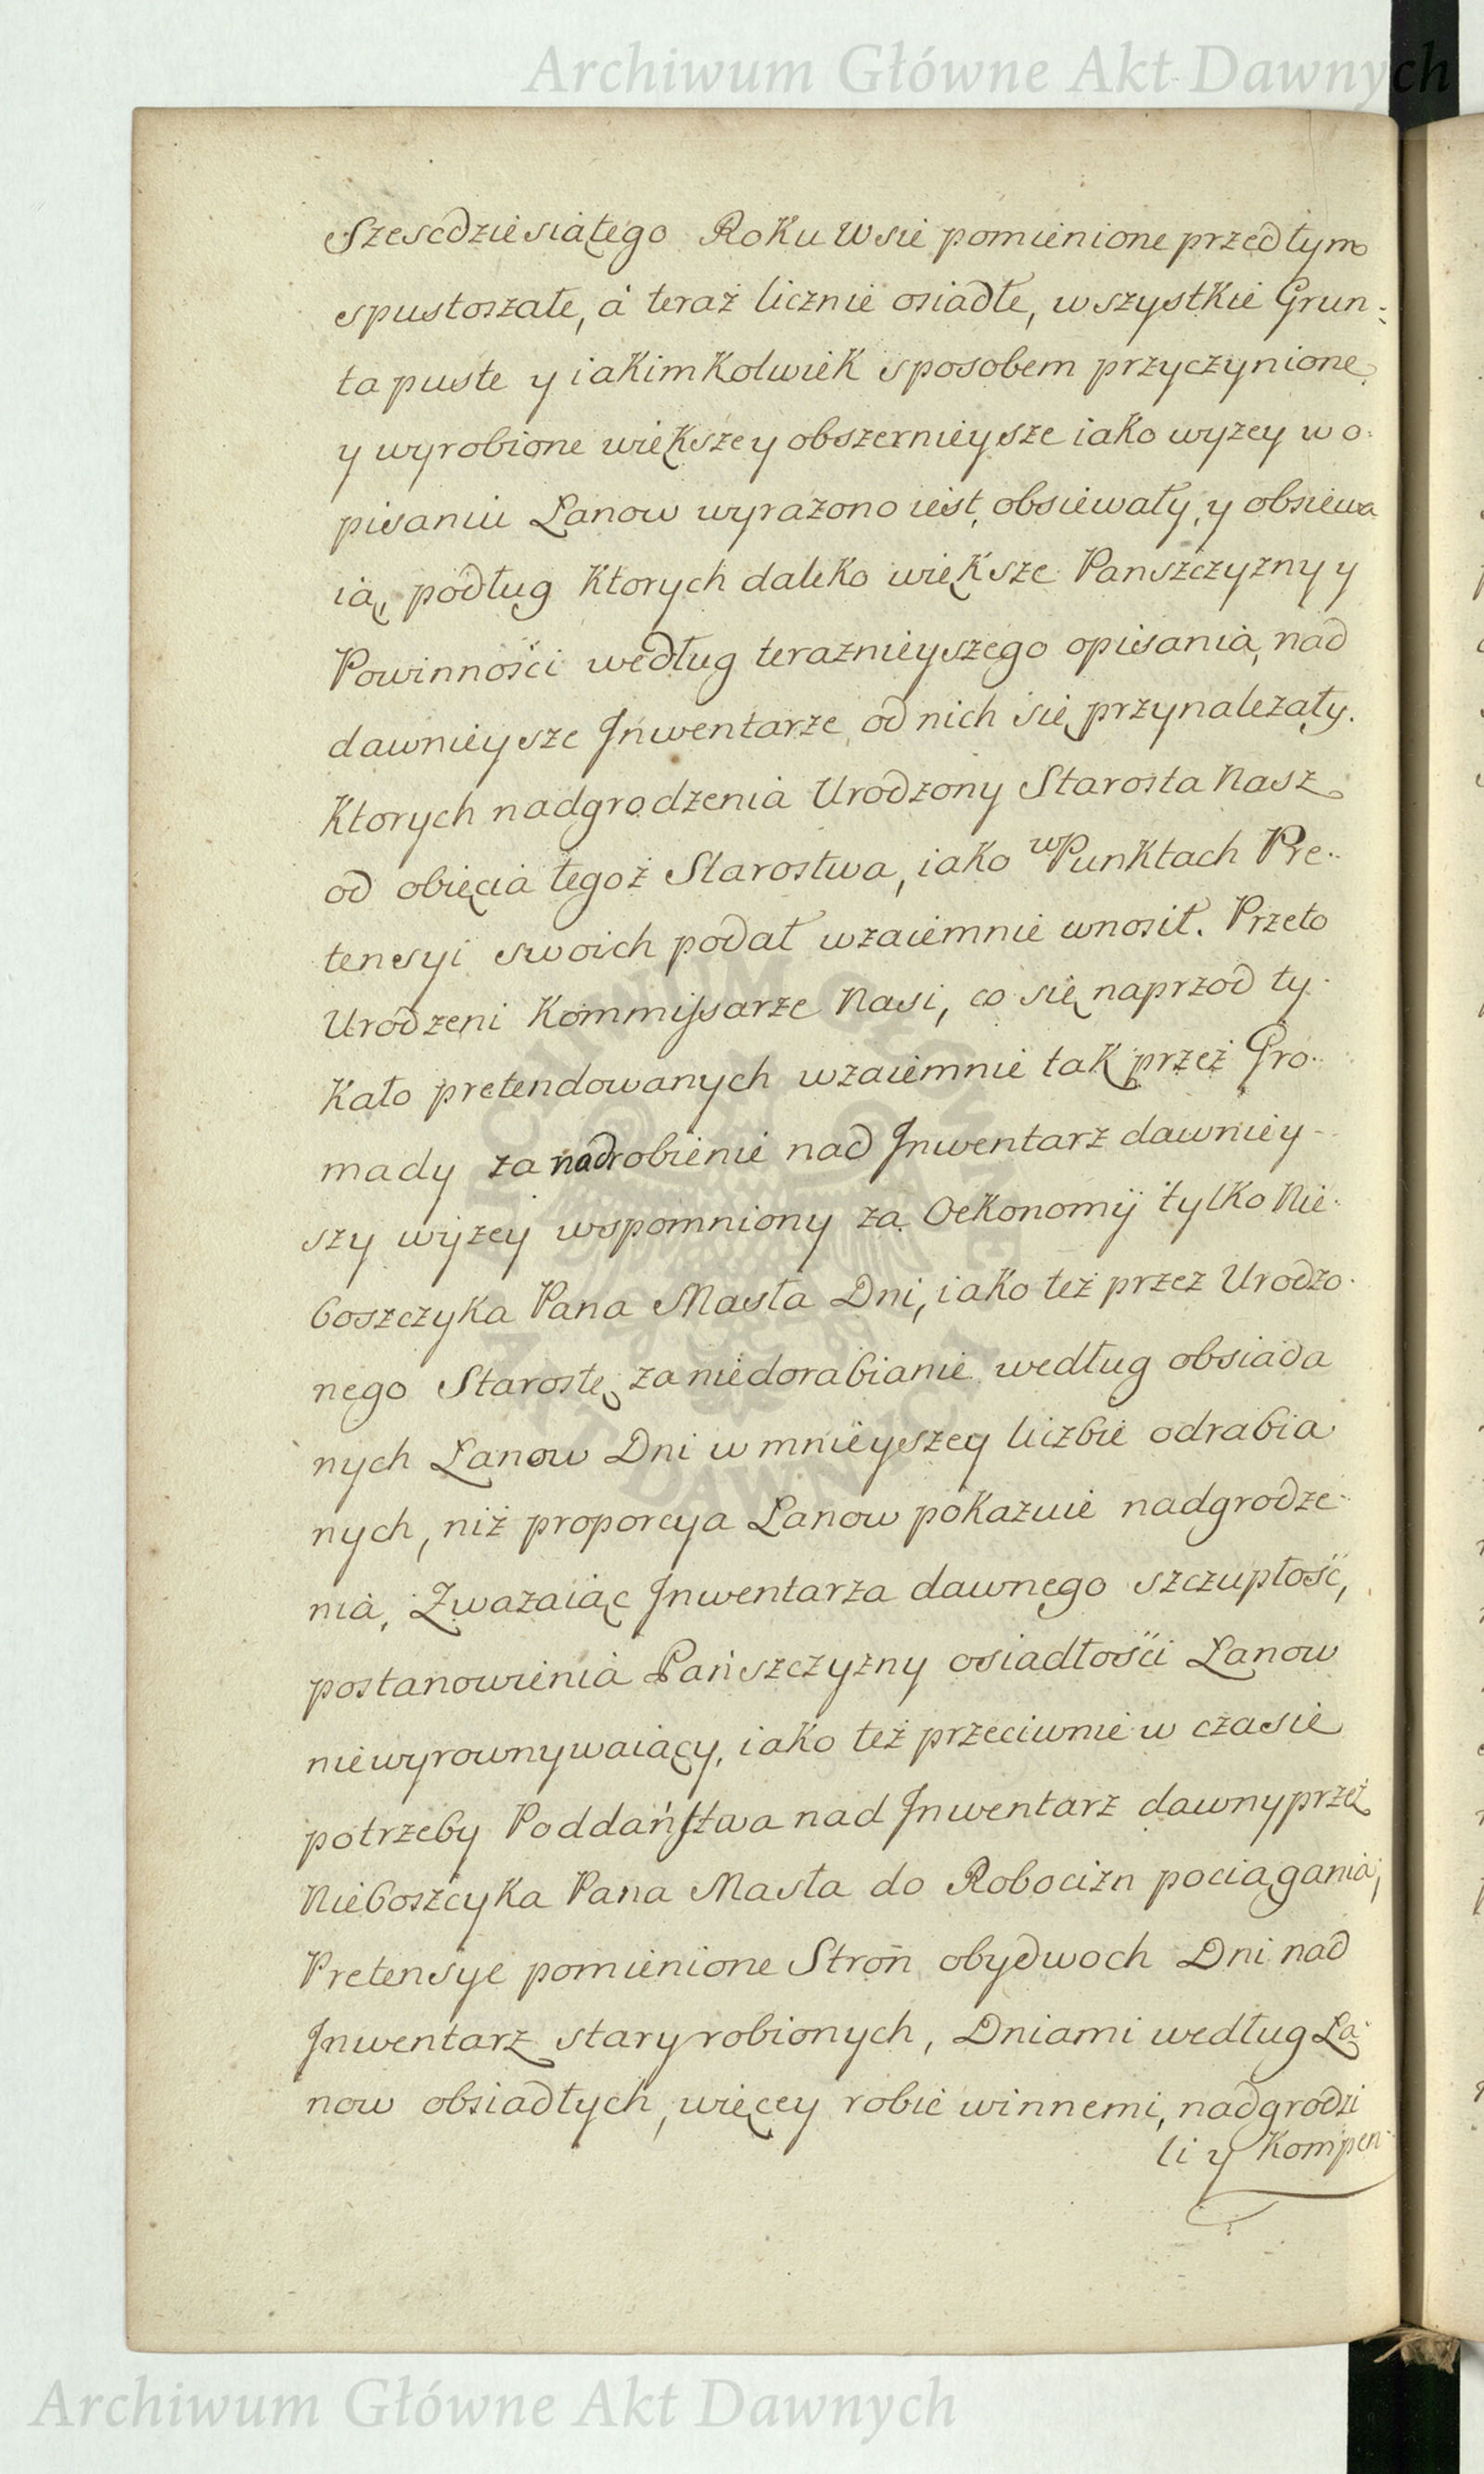 Archiwum Główne Akt Dawnych
Szescdziesiątego Roku Wsie pomienione przedtym
spustoszałe, á teraz licznie osiadłe, wszystkie Grun-
ta puste y iakimkolwiek sposobem przyczynione
y wyrobione większe y obszernieysze iako wyzey w o-
pisaniu Lanow wyrazono iest, obsiewały, y obsiewa
ią, podług ktorych daleko większe Panszczyzny y
Powinności według teraznieyszego opisania, nad
dawnieysze Inwentarze od nich się przynalezały.
Ktorych nadgrodzenia Urodzony Starosta Nasz
od obięcia tegoż Starostwa, iako w Punktach Pre-
tensyi swoich podał wzaiemnie wnosił. Przeto
Urodzeni Kommissarze Nasi, co się naprzod ty-
kało pretendowanych wzaiemnie tak przez Gro-
mady za nadrobienie nad Inwentarz dawniey-
szy wyzey wspomniony za Oekonomÿ tylko Nie-
boszczyka Pana Masła Dni, iako też przez Urodzo-
nego Starostę za niedorabianie według obsiada
nych Lanow Dni w mnieyszey liczbie odrabia
nych, niż proporcya Lanow pokazuie nadgrodze-
nia, Zwazaiąc Inwentarza dawnego szczupłość,
postanowienia Pańszczyzny osiadłości Lanow
niewyrownywaiący, iako też przeciwnie w czasie
potrzeby Poddaństwa nad Inwentarz dawny przez
Nieboszcyka Pana Masła do Robocizn pociągania,
Pretensye pomienione Stron obydwoch Dni nad
Inwentarz stary robionych, Dniami według La-
now obsiadłych, więcey robić winnemi, nadgrodzi
li y Kompen-
Archiwum Główne Akt Dawnych